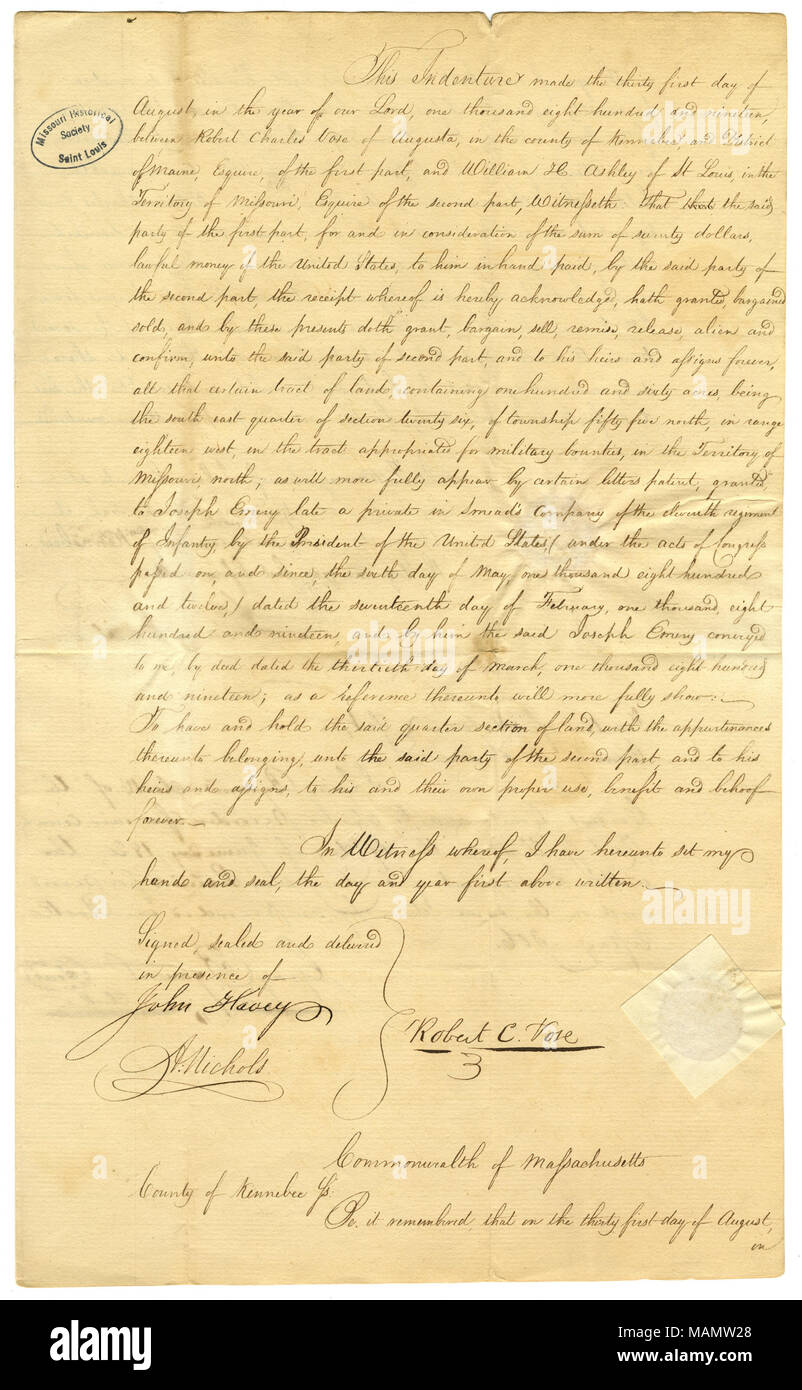 Missouri Historical
Society
Saint Louis
This Indenture made the thirty first day of
August, in the year of our Lord, one thousand eight hundred and nineteen,
between Robert Charles Vose of Augusta, in the county of Kennebec, and District
of Maine, Esquire, of the first part, and William H. Ashley of St Louis, in the
Territory of Missouri, Esquire of the second part, Witnesseth: That that the said
party of the first part, for and in consideration of the sum of seventy dollars,
lawful money of the United States, to him in hand paid, by the said party of
the second part, the receipt whereof is hereby acknowledged, hath granted, bargained
sold, and by these presents doth grant, bargain, sell, remise, release, alien and
confirm, unto the said party of second part, and to his heirs and assigns forever,
all that certain tract of land, containing one hundred and sixty acres, being
the south east quarter of section twenty six, of township fifty five north, in range
eighteen west, in the tract appropriated for military bounties, in the Territory of
Missouri, north; as will more fully appear by certain letters patent, granted,
to Joseph Emery late a private in Smead's Company of the eleventh regiment
of Infantry, by the President of the United States, (under the acts of Congress
passed on, and since, the sixth day of May, one thousand eight hundred
and twelve,) dated the seventeenth day of February, one thousand, eight
hundred and nineteen, and by him the said Joseph Emery conveyed
to me, by deed dated the thirtieth day of March, one thousand eight hundred
and nineteen; as a reference thereunto will more fully show:—
To have and hold the said quarter section of land, with the appurtenances
thereunto belonging, unto the said party of the second part, and to his
heirs and assigns, to his and their own proper use, benefit and behoof
forever.—
In Witness whereof, I have hereunto set my
hand and seal, the day and year first above written.—
Signed, sealed and delivered
in presence of
John Havey
Robert C. Vose
A. Nichols
Commonwealth of Massachusetts
County of Kennebec Ss.
Be it remembered, that on the thirty first day of August,
on
alamy
Image ID: MAMW28
www.alamy.com